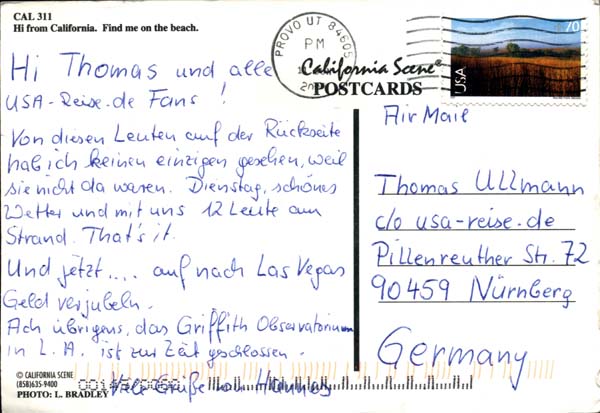 CAL 311
Hi from California. Find me on the beach.
PROVO UT 84605
PM
California Scene®
POSTCARDS
70
USA
Hi Thomas und alle
USA-Reise.de Fans !
Von diesen Leuten auf der Rückseite
hab ich keinen einzigen gesehen, weil
sie nicht da waren. Dienstag, schönes
Wetter und mit uns 12 Leute am
Strand. That's it.
Und jetzt .... auf nach Las Vegas
Geld verjubeln.
Ach übrigens, das Griffith Observatorium
in L.A. ist zur Zeit geschlossen.
Viele Grüße von Hannes
Air Mail
Thomas Ullmann
c/o usa-reise.de
Pillenreuther Str. 72
90459 Nürnberg
Germany
© CALIFORNIA SCENE
(858)635-9400
PHOTO: L. BRADLEY